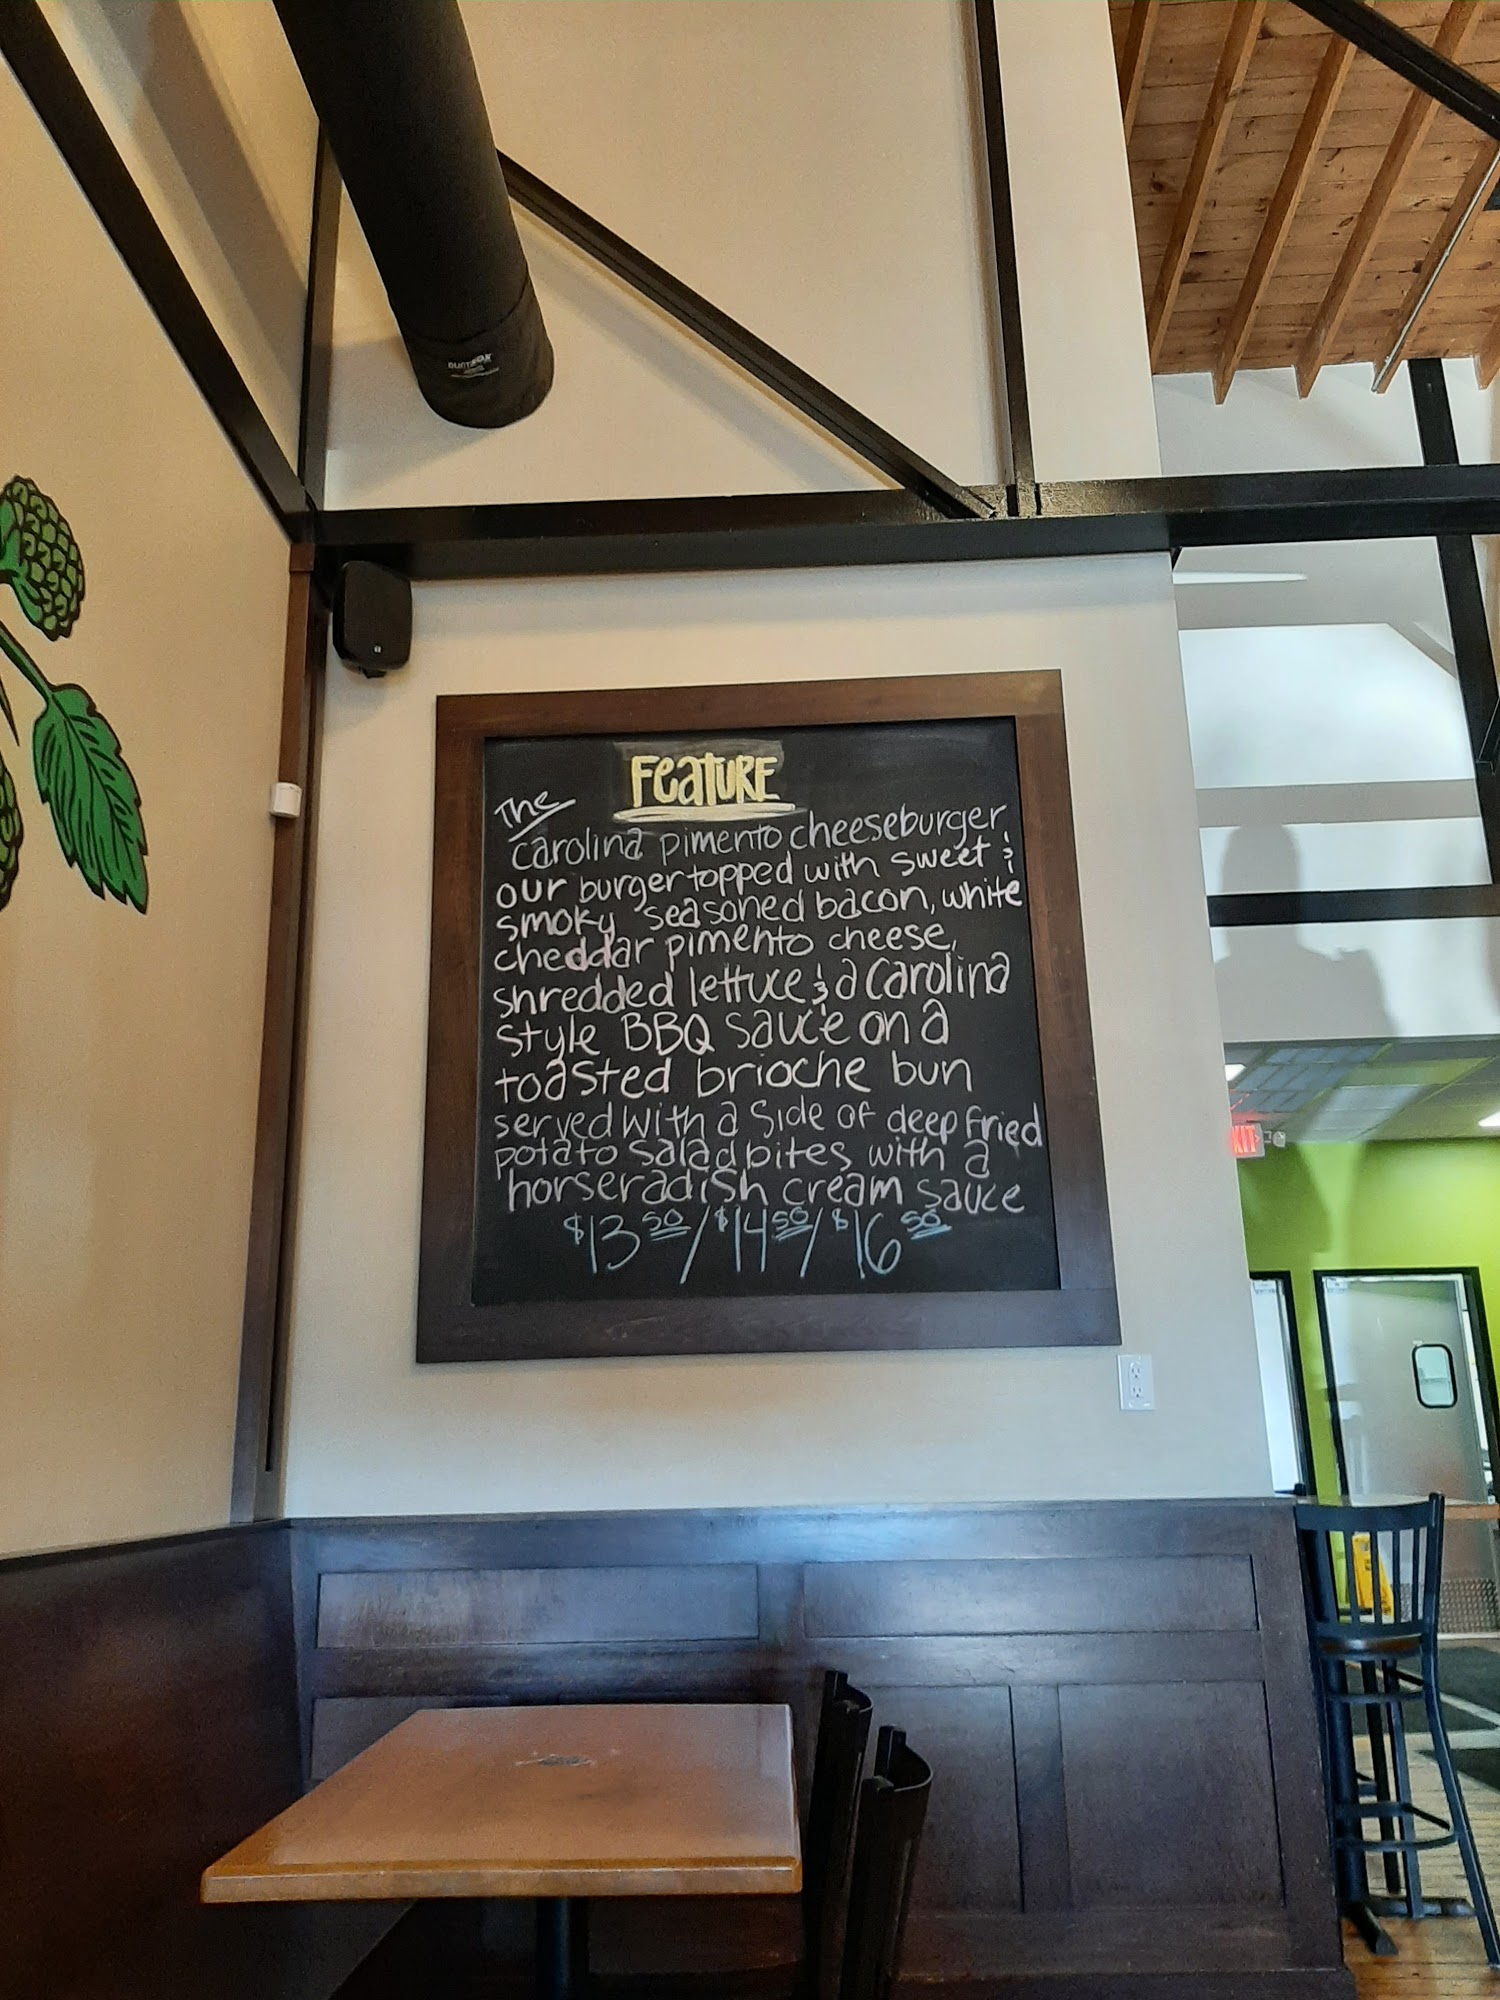 FeatURE
The
carolina pimento cheeseburger
our burger topped with sweet &
smoky seasoned bacon, white
cheddar pimento cheese,
shredded lettuce & a carolina
style BBQ sauce on a
toasted brioche bun
served with a side of deep fried
potato salad bites with a
horseradish cream sauce
$13.50/$14.50/$16.50
EXIT